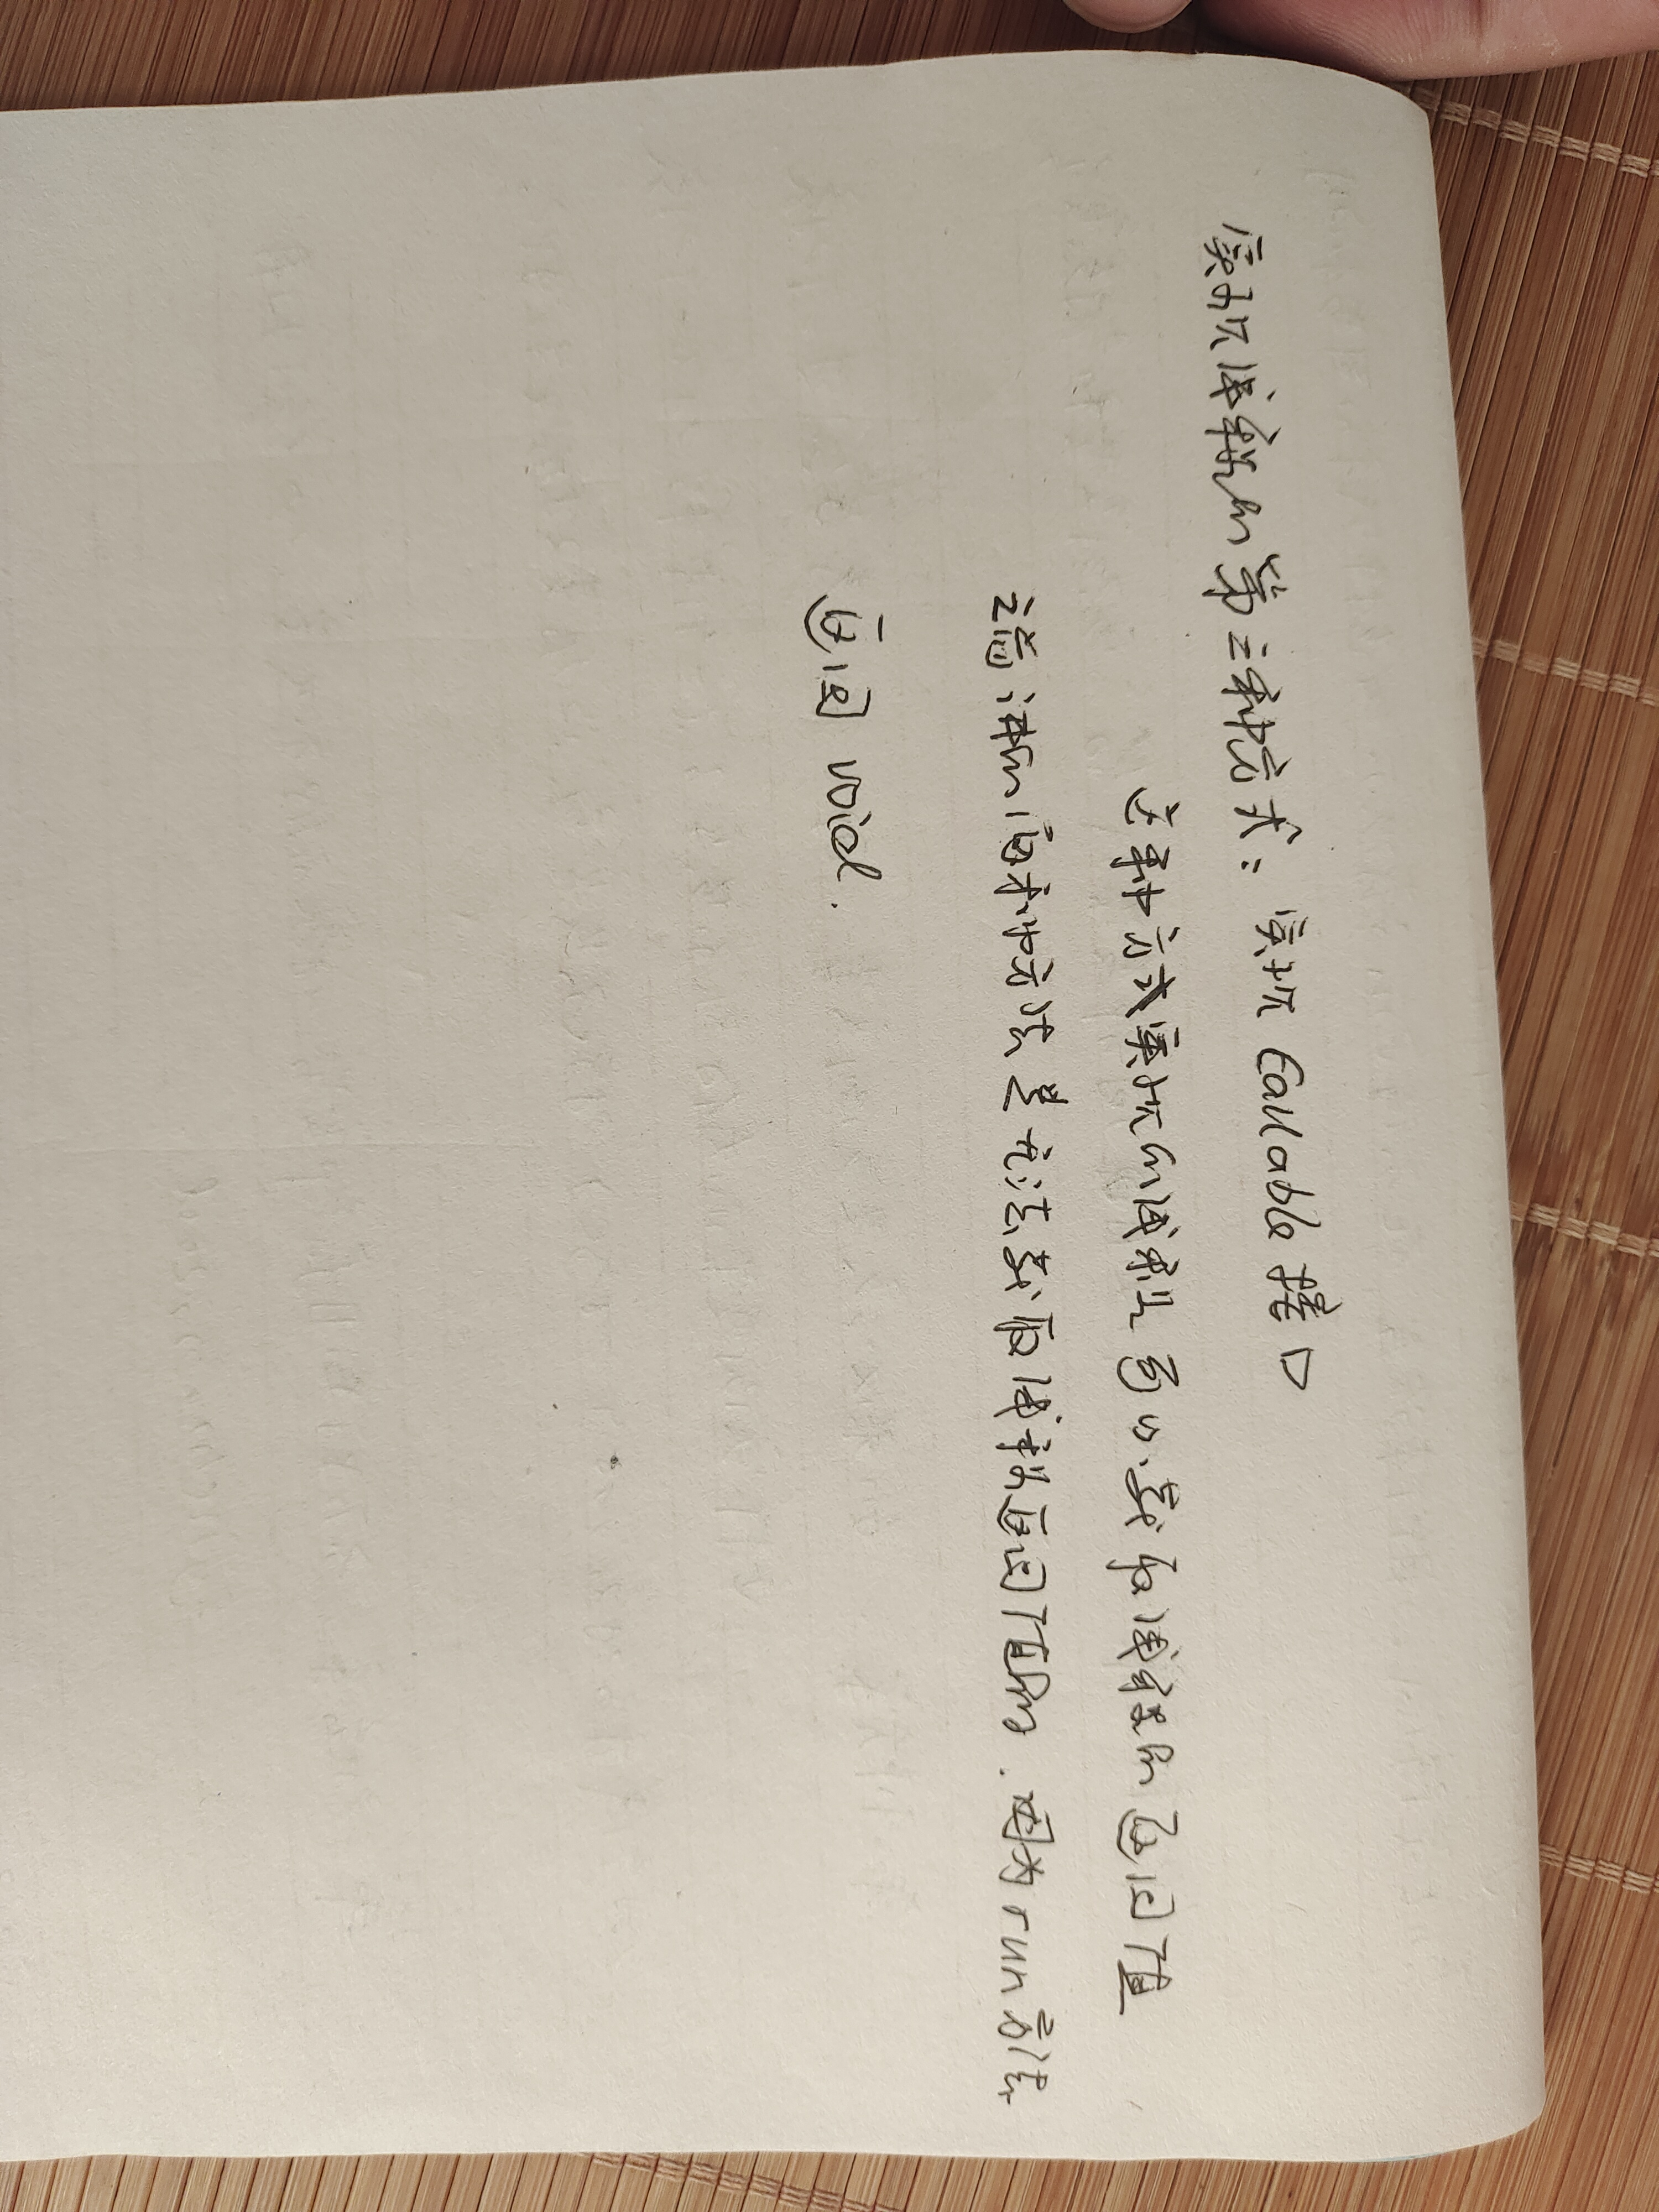 实现线程的第三种方式：实现 Callable 接口
这种方式实现的线程可以获取线程的返回值
之前讲的俩种方法是无法获取线程返回值的．因为 run 方法
返回 void．